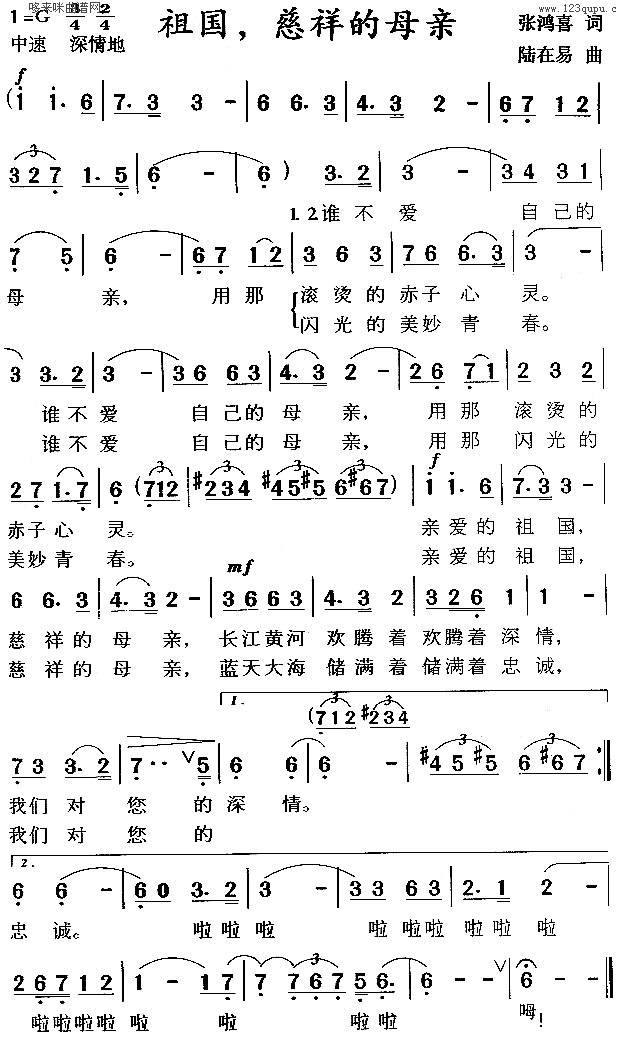 哆来咪曲谱网 www.123qupu.c
1=G 3/4 2/4 祖国，慈祥的母亲 张鸿喜 词
中速 深情地 陆在易 曲
f
( i i· 6 | 7· 3 3 - | 6 6· 3 | 4· 3 2 - | 6 7 1 2 |
3 2 7 1· 5 | 6 - | 6 - ) 3· 2 | 3 - | 3 4 3 1 |
1. 2 谁 不 爱 自己的
7 5 | 6 - | 6 7 1 2 | 3 6 3 | 7 6 6· 3 | 3 - |
母 亲, 用那 滚烫的赤子心 灵。
闪光的美妙青 春。
3 3· 2 | 3 - | 3 6 6 3 | 4· 3 2 - | 2 6 7 1 | 2 3 2 |
谁不爱 自己的母 亲, 用那 滚烫的
谁不爱 自己的母 亲, 用那 闪光的
f
2 7 1· 7 | 6 (7 1 2 | #2 3 4 #4 5 #5 | 6 #6 7 ) | i i· 6 | 7· 3 3 - |
赤子心 灵。 亲爱的祖 国,
美妙青 春。 亲爱的祖 国,
mf
6 6· 3 | 4· 3 2 - | 3 6 6 3 | 4· 3 2 | 3 2 6 1 | 1 - |
慈 祥的母 亲, 长江黄河 欢腾着 欢腾着深情,
慈 祥的母 亲, 蓝天大海 储满着 储满着忠诚,
1.
(7 1 2 #2 3 4
7 3 3· 2 | 7·· ∨ 5 | 6 6 | 6 - | #4 5 #5 6 #6 7 :‖
我们 对 您 的深 情。
我们 对 您 的
2.
6 6 - | 6 0 3· 2 | 3 - | 3 3 6 3 | 2· 1 2 - |
忠 诚。 啦啦 啦 啦 啦啦 啦 啦 啦
2 6 7 1 2 | 1 - 1 7 | 7 7 6 7 5 6· | 6 - - ∨ | 6 - ‖
啦啦啦啦 啦 啦 啦 啦 啦 呣!